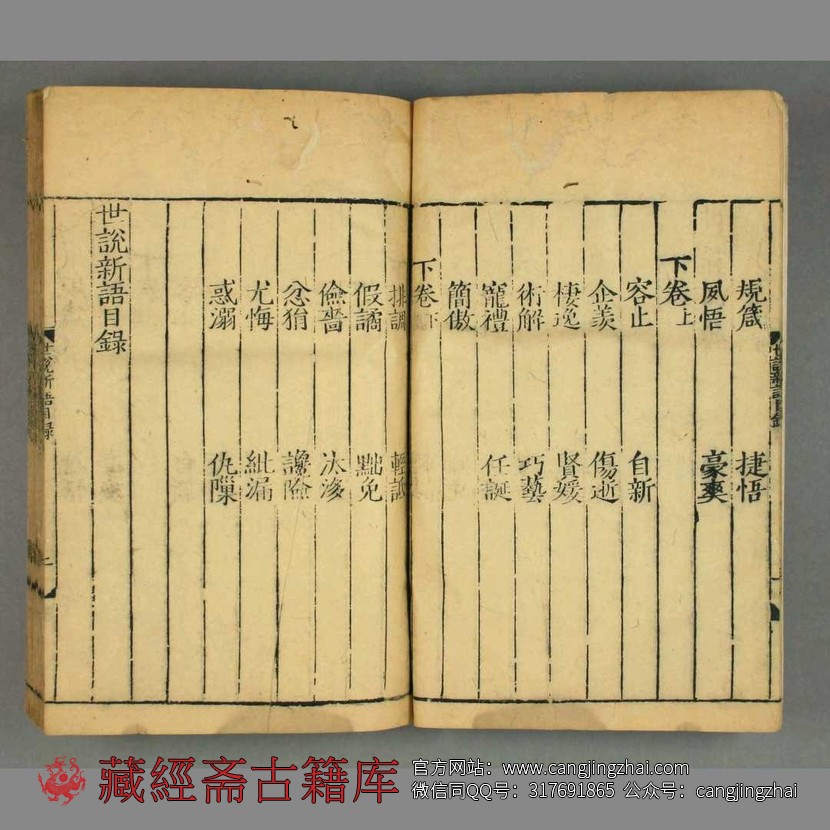 規箴 捷悟
夙悟 豪爽
下卷上
容止 自新
企羨 傷逝
棲逸 賢媛
術解 巧藝
寵禮 任誕
簡傲
下卷下
排調 輕詆
假譎 黜免
儉嗇 汰侈
忿狷 讒險
尤悔 紕漏
惑溺 仇隟
世說新語目錄
世說新語目錄
藏經斋古籍库
官方网站：www.cangjingzhai.com
微信同QQ号：317691865 公众号：cangjingzhai